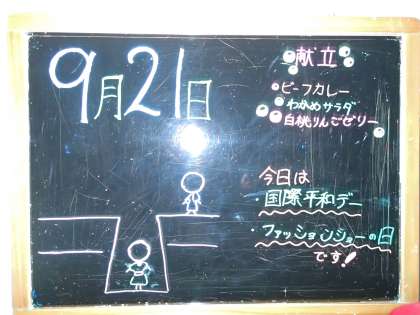 9月21日
献立
・ビーフカレー
・わかめサラダ
・白桃りんごゼリー
今日は
・国際平和デー
・ファッションショーの日
です!!